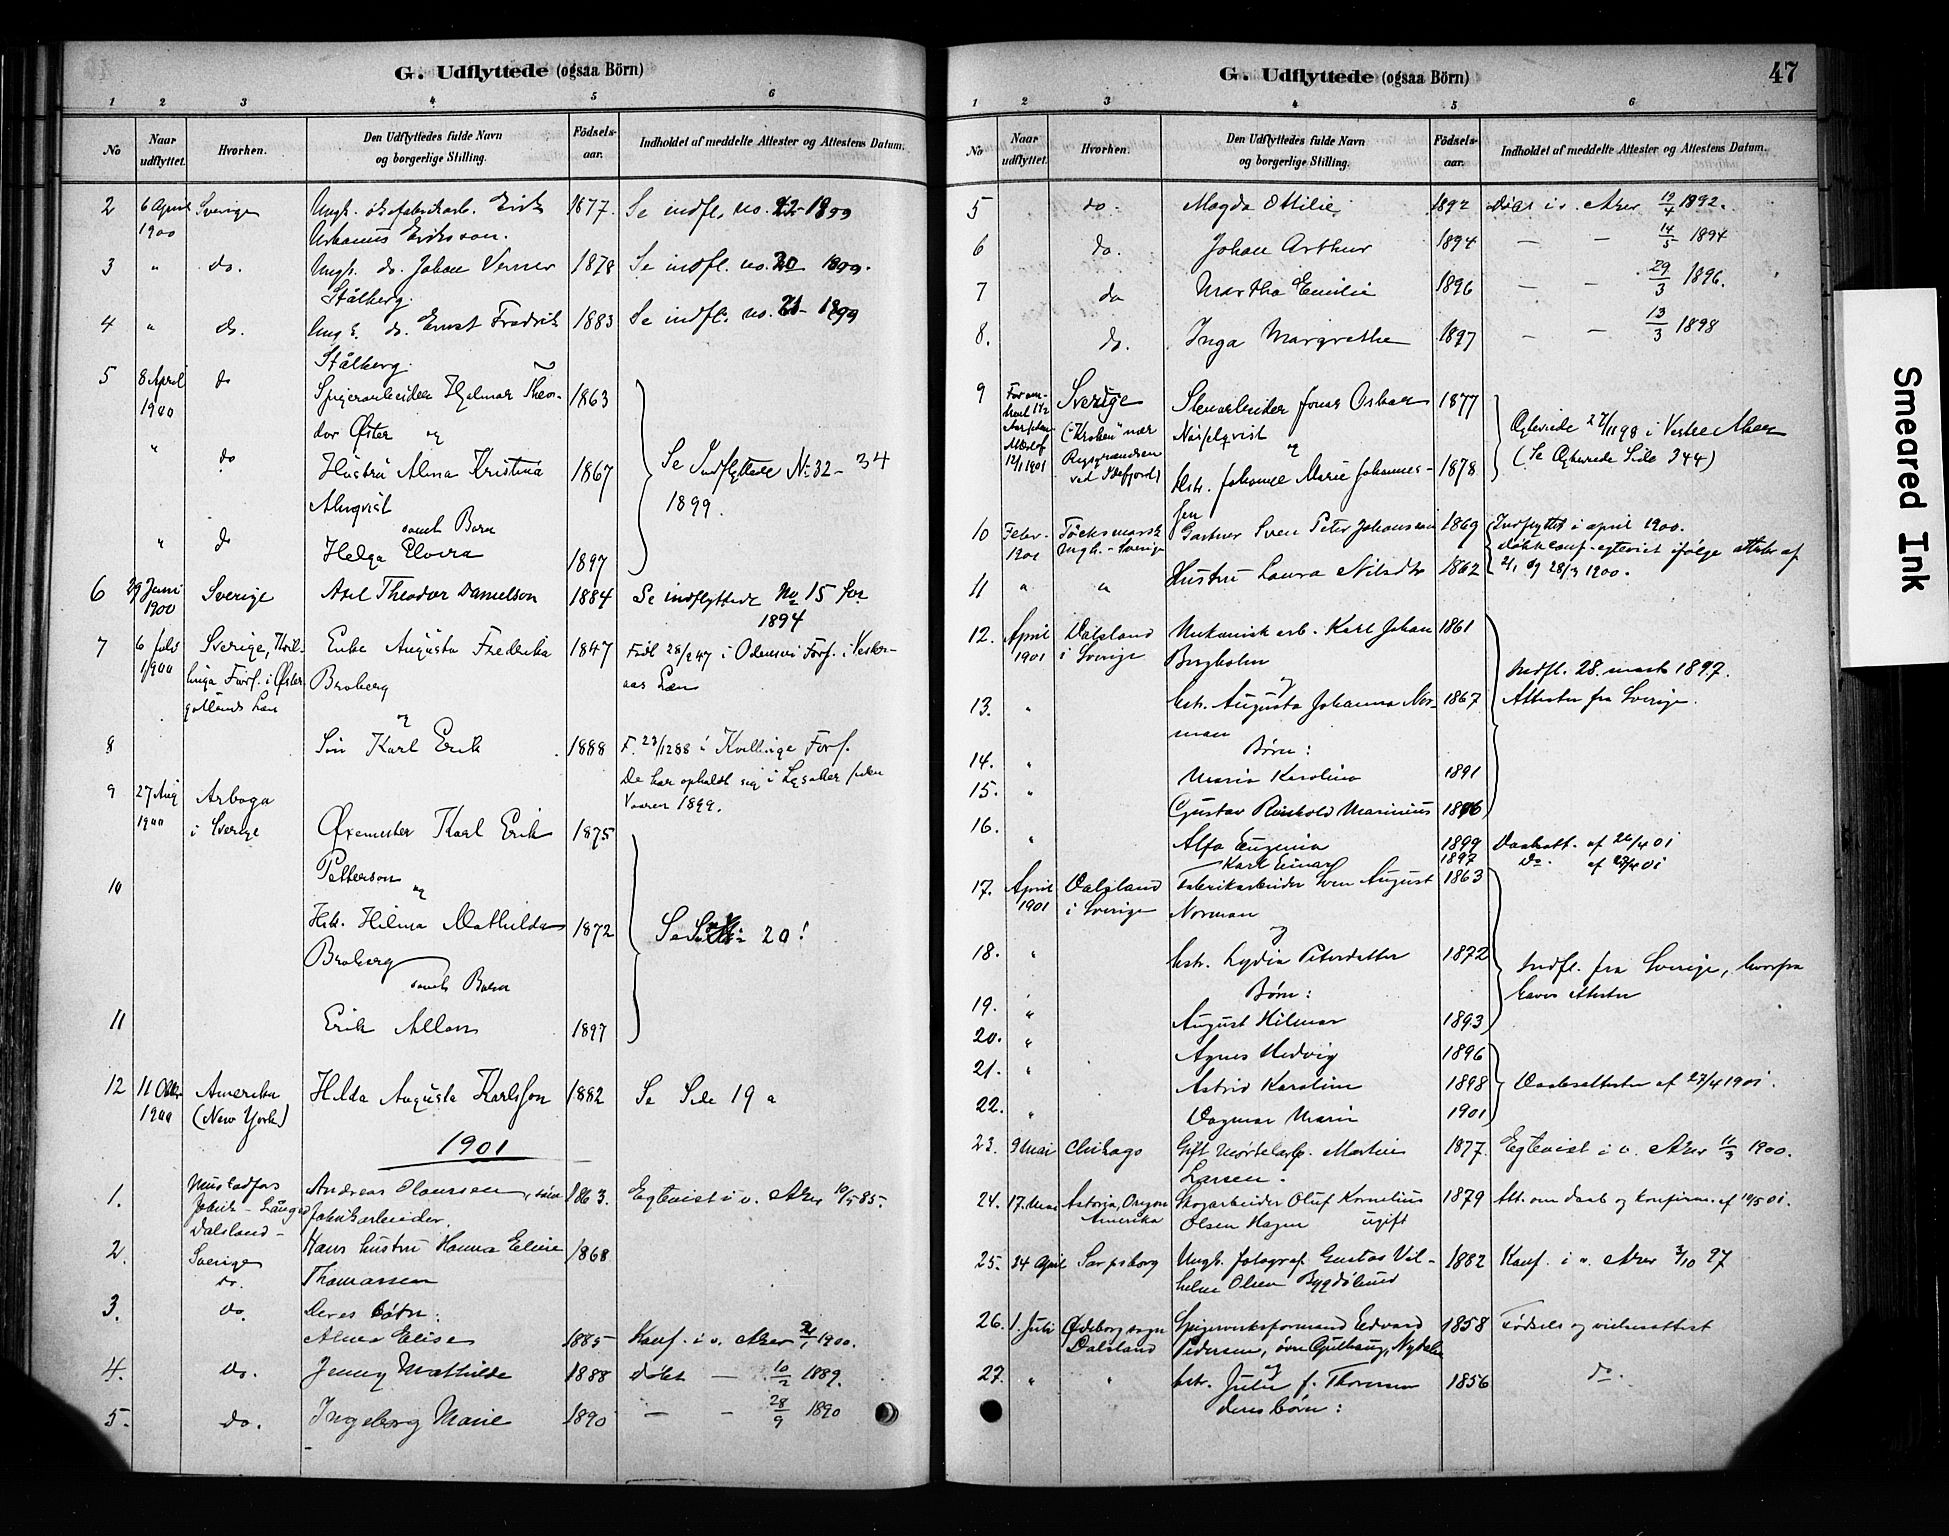 G. Udflyttede (ogsaa Börn)
1 2 3 4 5 6
No Naar udflyttet. Hvorhen. Den Udflyttedes fulde Navn og borgerlige Stilling. Födsels-aar. Indholdet af meddelte Attester og Attestens Datum.
2 6 April Sverige Ungk. Erik 1877. Se indfl. no. 22 - 1899
1900 Eriksson.
3 " do. Ungk. do. Johan Verner 1878 Se indfl. no. 20 1899.
Stålberg.
4 " do. Ungk. do. Ernst Fredrik 1883 Se indfl. no. 21 - 1899
Stålberg.
5 8 April do Spigerarbeider Hjalmar Theo- 1863
1900 dor Øster og
" do Hustru Alma Kristina 1867 Se Indflyttede No 32 - 34
Almqvist 1899.
samt Barn
" do Helga Elvira 1897
6 29 Juni Sverige Axel Theodor Danielson 1884 Se indflyttede No 15 for
1900 1894
7 6 Sverige, Kvil- Enke Augusta Frederika 1847 Född 28/2 47 i Odensvi Fors. i Vester-
1900 linge Fors. i Øster- Broberg aas Læn
götlands Län og
8 Sön Karl Erik 1888 F. 23/12 88 i Kvillinge Fors.
De har opholdt sig i Lysaker siden
9 27 Aug Arboga Vaaren 1899.
1900 i Sverige Karl Erik 1875
Petterson
10 og
Hstr. Hilma Mathilda 1872 Se 20!
Broberg
samt Barn
11 Erik Allan 1897
12 11 Oktr Amerika Hilda Augusta Karlsson 1882 Se Side 19 a
1900 (New York)
1901
1. Mustadfors Andreas Olaussen, 1863. Egteviet i v. Aker 10/5 85.
Fabrik - Långed fabrikarbeider.
Dalsland -
2. Sverige Hans hustru Hanna Eline 1868
do. Thomassen
3. do. Deres børn:
Alma Elise 1885 Konf. i v. Aker 1900.
4. do. Jenny Mathilde 1888 døbt — 10/2 1889.
5. do. Ingeborg Marie 1890 — - 28/9 1890
G. Udflyttede (ogsaa Börn) 47
1 2 3 4 5 6
No Naar udflyttet. Hvorhen. Den Udflyttedes fulde Navn og borgerlige Stilling. Födsels-aar. Indholdet af meddelte Attester og Attestens Datum.
5 do. Magda Ottilie 1892 Døbt i v. Aker 19/4 1892.
6 do. Johan Arthur 1894 — — 14/5 1894
7 do Martha Emilie 1896 - - 29/3 1896.
8. do. Inga Margrethe 1897 — — 13/3 1898
9 Sverige Stenarbeider Jonas Oskar 1877
("Kroken" nær og Egteviede 27/11 98 i Vestre Aker
12/1 1901 Rigsgrændsen Hstr. Johanne Marie Johannes- 1878 (Se Egteviede Side 344)
ved Idefjord) sen
10 Febr. Töcksmark Gartner Sven Peter Johansson 1869 Indflyttet i april 1900.
1901 Sverige attester af
11 " " Hustru Laura Nilsdtr 1862 og 28/3 1900.
12. April Dalsland Mekanisk arb. Karl Johan 1861
1901 i Sverige Bergholm Indfl. 28. marts 1897.
og
13. " hstr. Augusta Johanna Nor- 1867 Attester fra Sverige.
man
Børn:
14. " Maria Karolina 1891
15. " Gustav Reinhold Marinius 1896
16. " Alfa Eugenia 1899 Daabsatt. af 26/4 01
Karl Einar 1897 Do. af 23/4 01
17. April Dalsland Fabrikarbeider Sven August 1863
1901 i Sverige Norman
og
18. " hstr. Lydia Petersdatter 1872 Indfl. fra Sverige, hvorfra
Børn: haves attester
19. " August Hilmar 1893
20. " Agnes Hedvig 1896
21. " Astrid Karoline 1898 Daabsattester af 27/4 1901.
22. " Dagmar Marie 1901
23. 9 Mai Chikago Gift Martin 1877. Egteviet i v. Aker 11/3 1900.
Larsen.
24. 17. Mai Astoria, Oregon Skogarbeider Oluf Kornelius 1879 Att. om daab og konfirm. af 10/5 01.
Amerika Olsen Hagen ugift
25. 24 April Sarpsborg Ungk. fotograf Gustav Vil- 1882 Konf. i v. Aker 3/10 97
helm Olsen Bygdølund
26. 1. Juli Ødeborg sogn Spigerverksformand Edvard 1858 Fødsels og vielsesattest
Dalsland Pedersen, øvre Gulhaug, Nydalen
og
27. " " hstr. Julie f. Thoresen 1856 do.
deres børn:
Smeared Ink